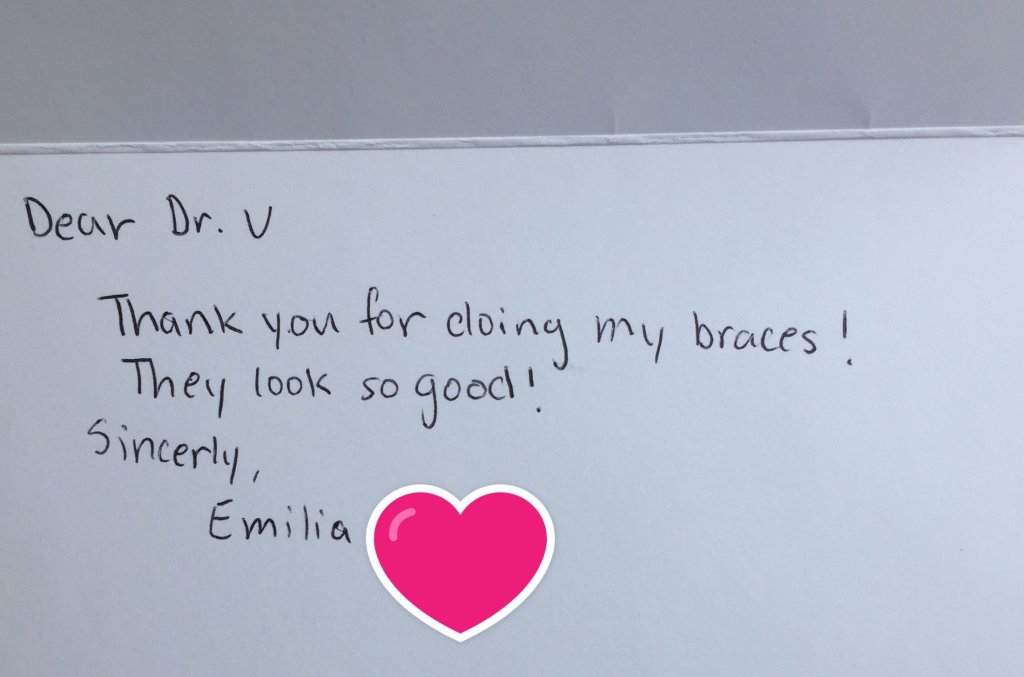 Dear Dr. V
Thank you for doing my braces!
They look so good!
Sincerly,
Emilia